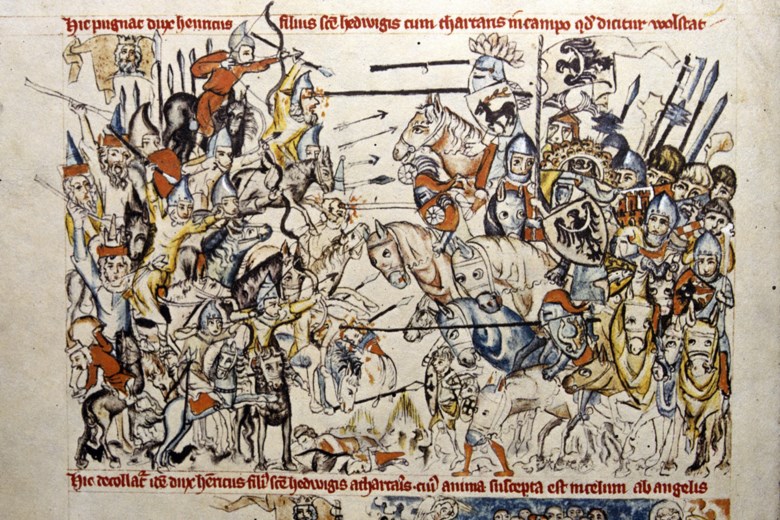 Hic pugnat dux henricus filius scē hedwigis cum thartaris in campo qd dicitur wolstat
Hic decollat᷑ idē dux henricus fili᷒ scē hedwigis a thartar᷒ cui᷒ anima suscepta est in celum ab angelis